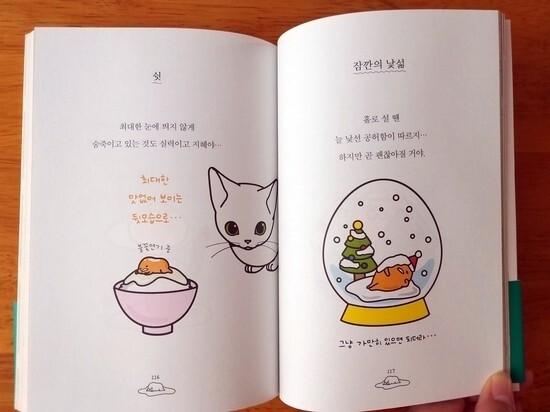 쉿
최대한 눈에 띄지 않게
숨죽이고 있는 것도 실력이고 지혜야…
최대한
맛없어 보이는
뒷모습으로…
불꽃연기 중
116
잠깐의 낯섦
홀로 설 땐
늘 낯선 공허함이 따르지…
하지만 곧 괜찮아질 거야.
그냥 가만히 있으면 되더라…
117